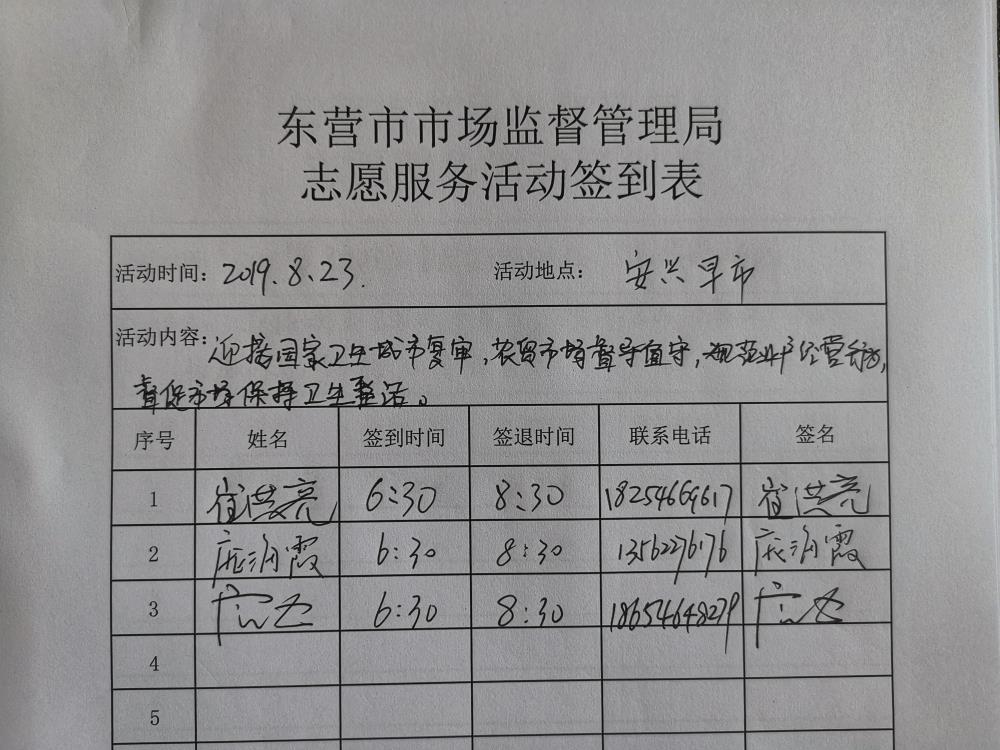 东营市市场监督管理局
志愿服务活动签到表
活动时间：2019.8.23. 活动地点：安兴早市
活动内容：迎接国家卫生城市复审，农贸市场督导值守，规范业户经营行为，
督促市场保持卫生整洁。
序号 姓名 签到时间 签退时间 联系电话 签名
1 崔洪亮 6:30 8:30 18254669617 崔洪亮
2 霞 6:30 8:30 13562276176 霞
3 6:30 8:30 18654648279
4
5